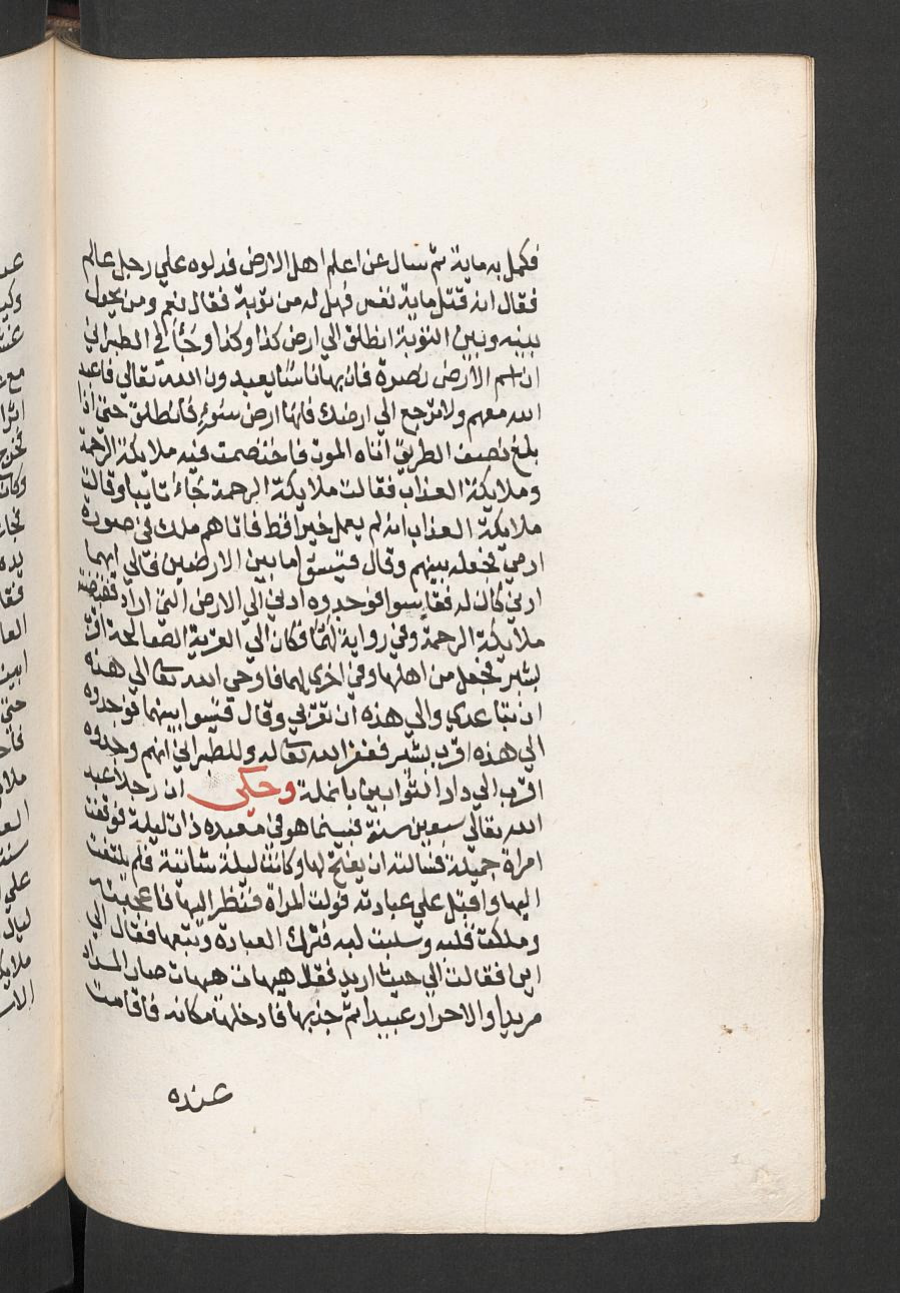 فكمل به ماية ثم سال عن اعلم اهل الارض فدلوه علي رجل عالم
فقال انه قتل ماية نفس فهل له من توبة فقال نعم ومن يحول
بينه وبين التوبة انطلق الي ارض كذا وكذا وجٓاء في الطبراني
ان اسم الارض نصرة فان بها ناسًا يعبدون الله تعالي فاعبد
الله معهم ولا ترجع الي ارضك فانها ارض سوءٍ فانطلق حتي اذا
بلغ نصف الطريق اتاه الموت فاختصمت فيه ملايكة الرحمة
وملايكة العذاب فقالت ملايكة الرحمة جَاء تايبا وقالت
ملايكة العذاب انه لم يعمل خيرا قط فاتاهم ملك في صورة
ادمي فجعله بينهم وقال قيسوا ما بين الارضين فالي ايهما
ادني كان له فقاسوا فوجدوه ادني الي الارض التي اراد فقبضته
ملايكة الرحمة وفي رواية لهُمَا فكان الي القرية الصالحة اقرب
بشبر فجعل من اهلها وفي اخري لهما فاوحي الله تعا الي هذه
ان تباعدي والي هذه ان تقربي وقال قيسوا بينهما فوجدوه
الي هذه اقرب بشبر فغفر الله تعا له وللطبراني انهم وجدوه
اقرب الي دار التوابين بانملة وحكي ان رجلا عبد
الله تعالي سبعين سنة فبينما هو في معبده ذات ليلة فوقفت
امراة جميلة فسالته ان يفتح لها وكانت ليلة شاتية فلم يلتفت
اليها واقبل علي عبادته فولت المراة فنظر اليها فاعجبته
وملكت قلبه وسلبت لبه فترك العبادة وتبعها فقال الي
اين فقالت الي حيث اريد فقال هيهات هيهات صار المراد
مريدا والاحرار عبيدا ثم جذبها فادخلها مكانه فاقامت
عنده